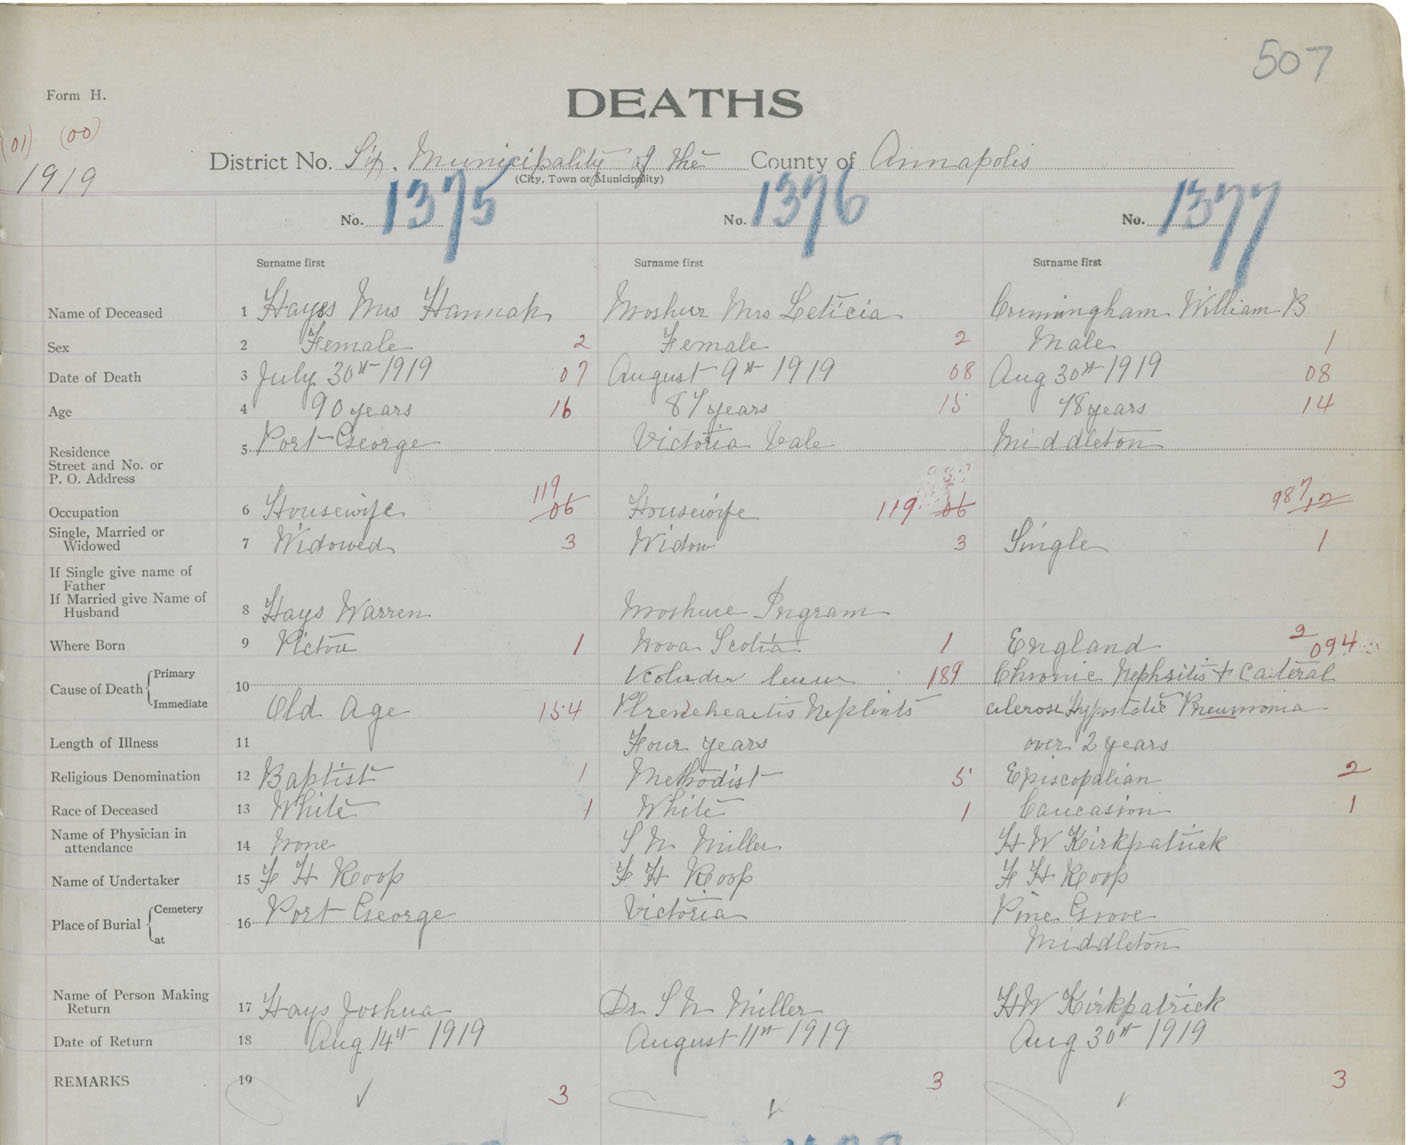 507
Form H.
DEATHS
(01) (00)
1919
District No. Six, Municipality of the County of Annapolis
(City, Town or Municipality)
No. 1375 No. 1376 No. 1377
Surname first Surname first Surname first
Name of Deceased 1 Hayes Mrs Hannah Moshur Mrs Leticia Cunningham William B
Sex 2 Female 2 Female 2 Male 1
Date of Death 3 July 30th 1919 07 August 9th 1919 08 Aug 30th 1919 08
Age 4 90 years 16 87 years 15 78 years 14
Residence 5 Port George Victoria Vale Middleton
Street and No. or
P. O. Address
Occupation 6 Housewife 119 06 Housewife 119 06 987 12
Single, Married or
Widowed 7 Widowed 3 Widow 3 Single 1
If Single give name of
Father
If Married give Name of
Husband 8 Hays Warren Moshure Ingram
Where Born 9 Pictou 1 Nova Scotia 1 England 2 094
Cause of Death Primary 10 189 Chronic Nephritis &
Immediate Old Age 154 Hypostatic Pneumonia
Length of Illness 11 Four years over 2 years
Religious Denomination 12 Baptist 1 Methodist 5 Episcopalian 2
Race of Deceased 13 White 1 White 1 Caucasion 1
Name of Physician in
attendance 14 None S N Miller H W Kirkpatrick
Name of Undertaker 15 F H Roop F H Roop F H Roop
Place of Burial Cemetery 16 Port George Victoria Pine Grove
at Middleton
Name of Person Making
Return 17 Hays Joshua Dr S N Miller H W Kirkpatrick
Date of Return 18 Aug 14th 1919 August 11th 1919 Aug 30th 1919
REMARKS 19 3 3 3